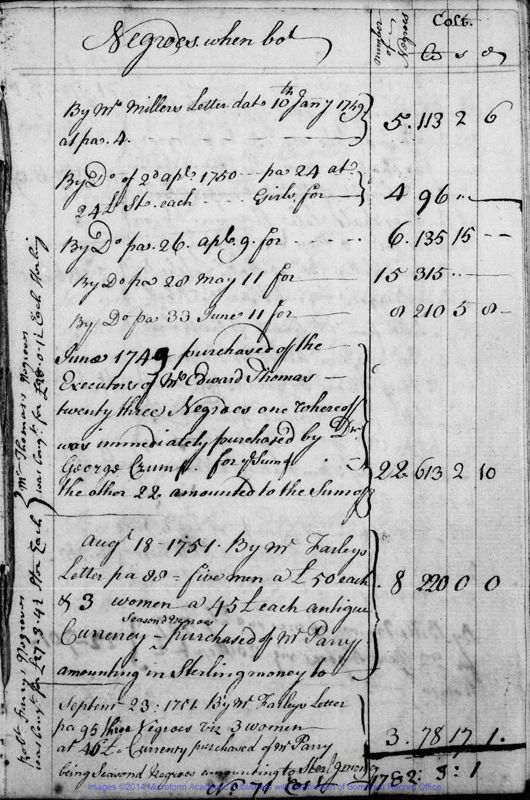 Negroes when bot
number of Negroes
Cost.
£ s d
By Mr Millers Letter date 10th Jany 1749
at pa. 4. 5. 113 2 6
By Do of 2d apl. 1750 - pa 24 at
24 £ St. each Girls for 4 96 " —
By Do pa. 26. apl. 9. for 6. 135 15 —
By Do pa 28 May 11 for 15 315 . —
By Do pa 33 June 11 for 8 210 5 8
June 1749 purchased of the
Executors of Mr Edward Thomas
twenty three Negroes one whereof
was immediately purchased by Dr
George Crump. for ye Sum of
the other 22 amounted to the Sum of 22 613 2 10
Augt 18 - 1751. By Mr Farleys
Letter pa 88 = five men a £50 each
& 3 women a 45£ each antigua 8 220 0 0
Season'd Negroes
Currency - purchased of Mr Parry
amounting in Sterling money to
Septemr 23: 1751 By Mr Farleys Letter
pa 95 three Negroes viz 3 women
at 46£ Currency purchased of Mr Parry 3. 78 17 1.
being Seasond Negroes amounting to Sterlg money
1782: 3: 1
Mr Thomas's Negroes
was bought for Each Sterling
Negroes
Each
Images ©2014 Microform Academic Publishers with permission of Somerset Record Office